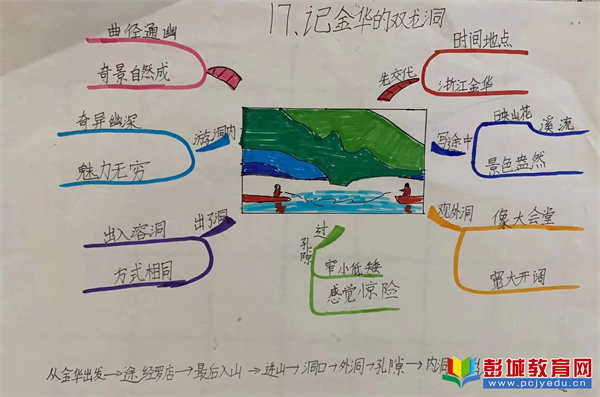 17、记金华的双龙洞
先交代
时间地点
浙江金华
写途中
映山花 溪流
景色盎然
观外洞
像大会堂
宽大开阔
过孔隙
窄小低矮
感觉惊险
出了洞
出入容洞
方式相同
游洞内
奇异幽深
魅力无穷
曲径通幽
奇景自然成
从金华出发→途经罗店→最后入山→进山→洞口→外洞→孔隙→内洞
彭城教育网
www.pcjyedu.cn